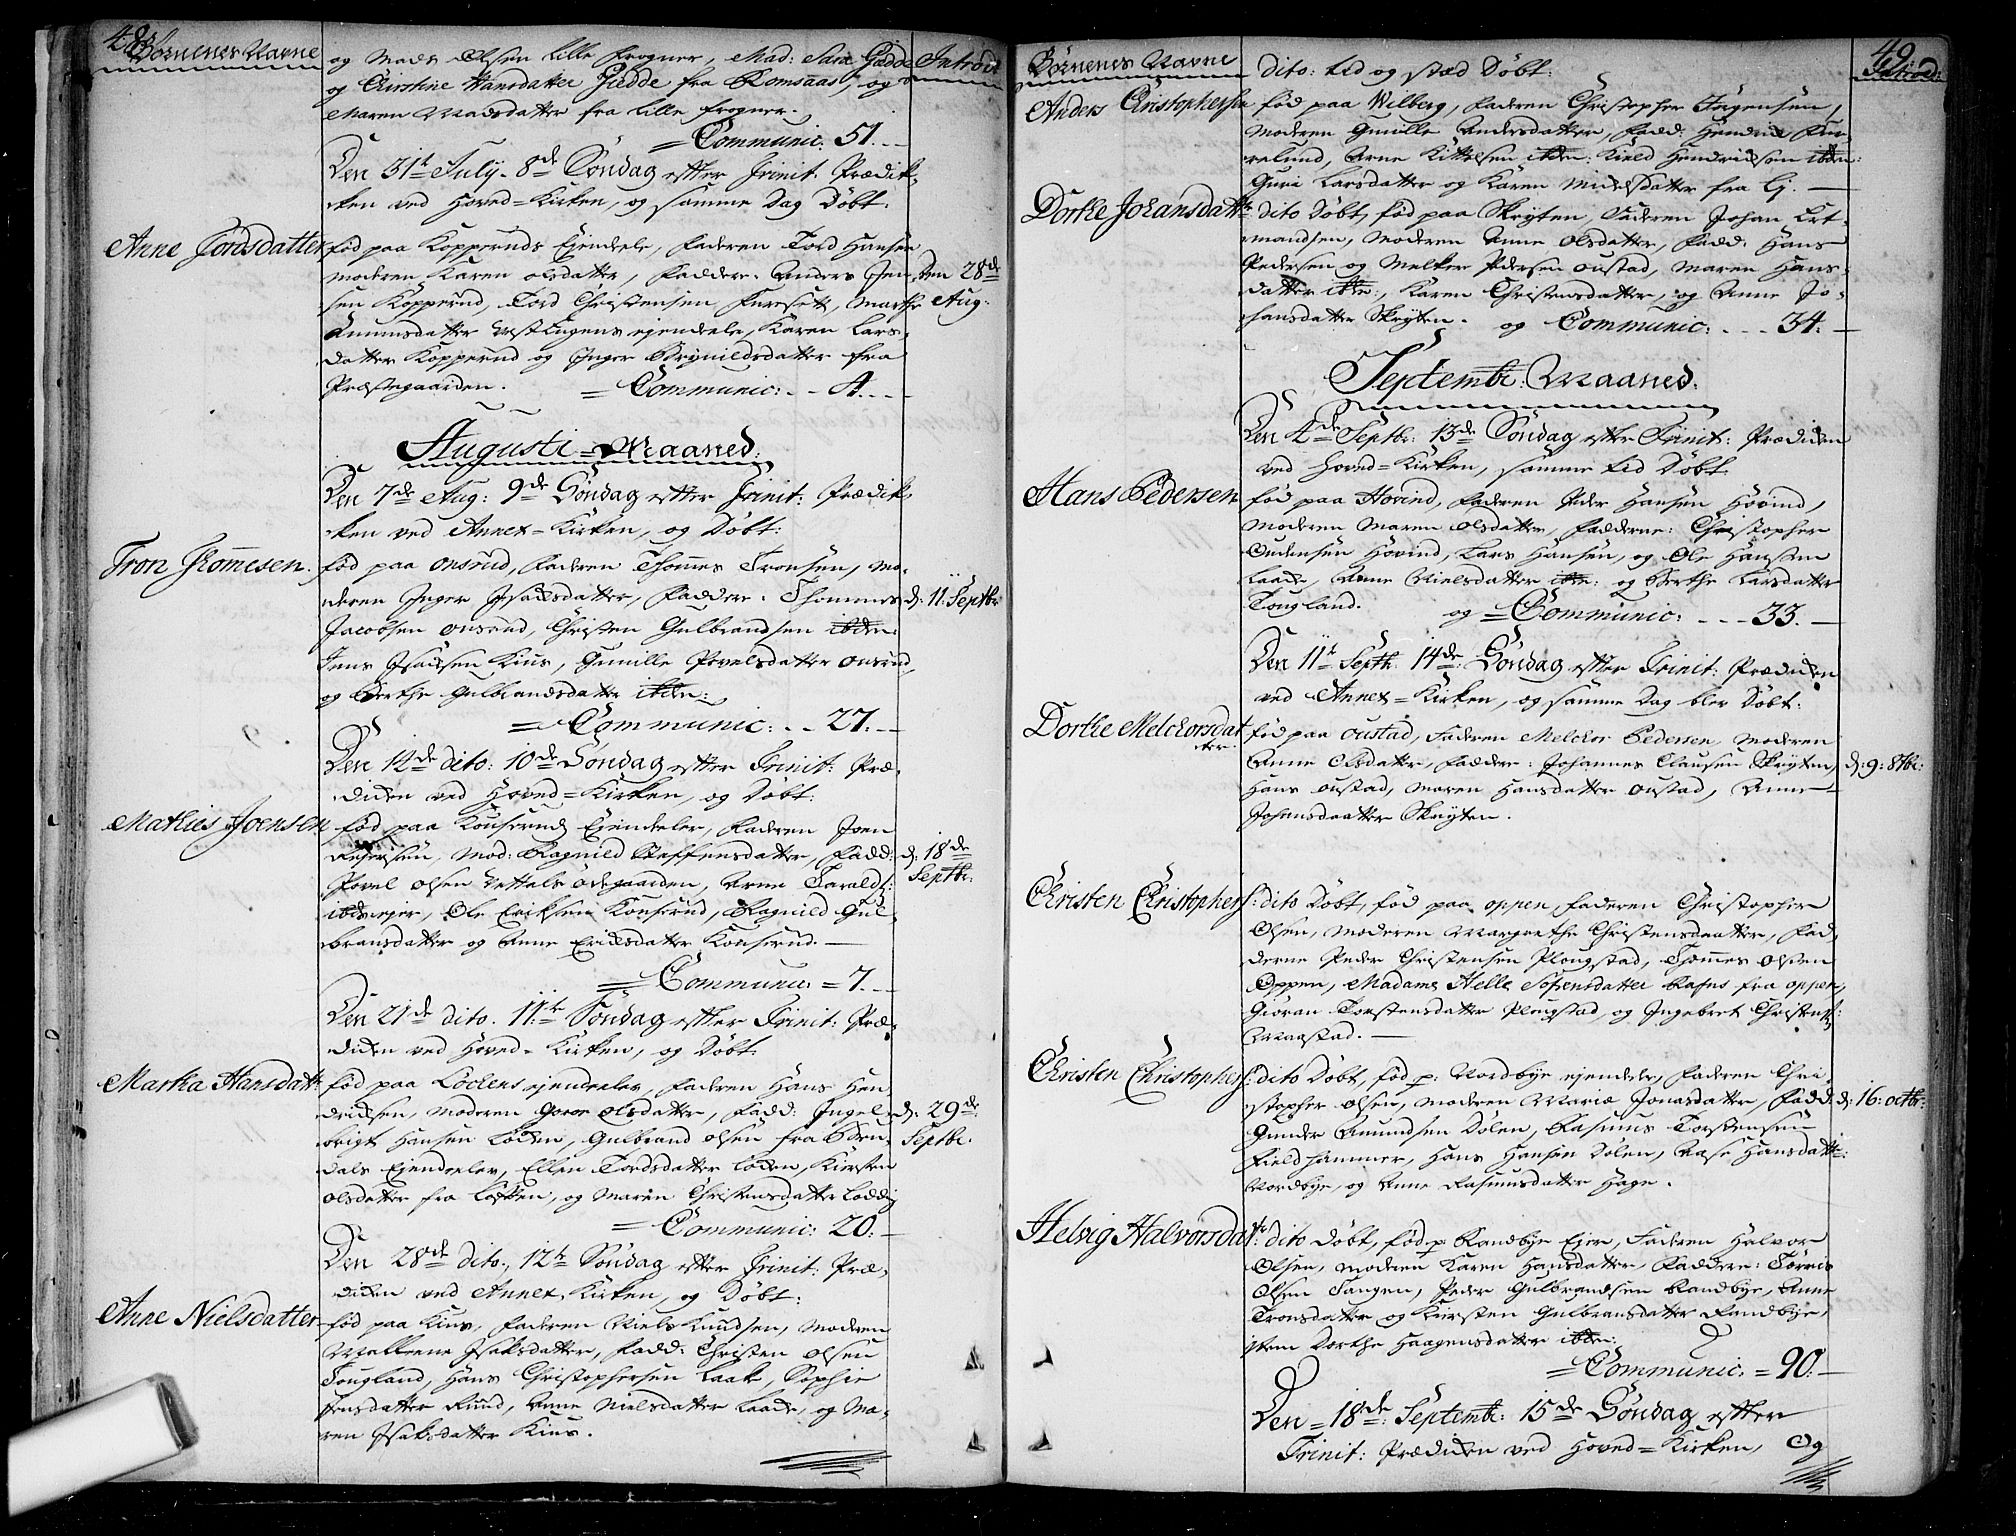 48.
Børnenes Navne
Introd
og Mads Olsen lille Frogner, Mad: Sara Gädde
og Christine Hansdatter Gedde fra Romsaas, og
Maren Madsdatter fra lille Frogner.
= Communic: 51.
Den 31te July. 8de Søndag efter Trinit: Prædik-
ken ved Hoved=Kirken, og samme Dag Døbt.
Anne Tordsdatter
født paa Kopperuds Ejendeele, Faderen Tord Hansen
Moderen Karen Olsdatter, Faddere: Anders Jen-
sen Kopperud, Tord Christensen Furesett, Marthe
Amundsdatter Ejendeele, Karen Lars-
datter Kopperud og Inger Brynildsdatter fra
Præstegaarden.
den 28de
Aug:
= Communic: - - A.
Augusti = Maaned.
Den 7de Aug: 9de Søndag efter Trinit: Prædik-
ken ved Annex=Kirken, og Døbt:
Tron Thomesen.
fød paa Onsrud, Faderen Thommes Tronsen, Mo-
deren Inger Isaksdatter, Faddere: Thommes
Jacobsen Onsrud, Christen Gulbrandsen ibden:
Jens Isaksen Kius, Gunille Povelsdatter Onsrud,
og Berthe Gulbrandsdatter ibden:
d: 11: Septbr
= Communic: - - 27. -
Den 14de dito: 10de Søndag efter Trinit: Præ-
diken ved Hoved=Kirken, og Døbt:
Mathies Joensen
fød paa Konserud Ejendeeler, Faderen Joen
Mod: Ragnild Steffensdatter, Fadd:
Povel Olsen Vettals Ødegaarden, Arne Taralds:
ibds ejer, Ole Eriksen Konserud, Ragnild Gul-
bransdatter og Anne Eriksdatter Konserud.
d: 18de
Septbr:
= Communic: = 7. -
Den 21de dito. 11:te Søndag efter Trinit: Præ-
diken ved Hoved=Kirken, og Døbt:
Martha Hansdatt:
fød paa Løckens ejendeeler, Faderen Hans Hen-
driksen, Moderen Goroe Olsdatter, Fadd: Ingel-
brigt Hansen Løken, Gulbrand Olsen fra
dals Ejendeeler, Ellen Tordsdatter Løken, Kirsten
Olsdatter fra Løkken, og Maren Christensdatter
d: 29de
Septbr.
= Communic: 20. -
Den 28de dito, 12te Søndag efter Trinit: Præ-
diken ved Annex=Kirken, og Døbt:
Anne Nielsdatter
fød paa Kius, Faderen Niels Knudsen, Moderen
Isaksdatter, Fadd: Christen Olsen
Tougland, Hans Christophersen Laake, Sophie
Jensdatter Ruud, Anne Nielsdatter Laade, og Ma-
ren Isaksdatter Kius.
49.
Børnenes Navne
Introd:
dito: tid og stæd Døbt:
Anders Christophersen
fød paa Wilberg, Faderen Christopher Jørgensen,
Moderen Gunille Andersdatter, Fadd: Hendrik Fur-
relund, Arne Kittelsen ibden: Kield Hendriksen ibden:
Guri Larsdatter og Karen Mikelsdatter fra Lj.
Dorthe Johansdattr
dito Døbt, fød paa Skryten, Faderen Johan Ert-
mandsen, Moderen Anne Olsdatter, Fadd: Hans
Pedersen og Melker Pedersen Oustad, Maren Hans-
datter ibde:, Karen Christensdatter, og Anne Jo-
hansdatter Skryten. og Communic: - - - 34. -
Septembr: Maaned.
Den 4de Septbr: 13de Søndag efter Trinit: Prædiken
ved Hoved=Kirken, samme tid Døbt
Hans Pedersen
fød paa Hovind, Faderen Peder Hansen Høvind,
Moderen Maren Olsdatter, Fadderne: Christopher
Hovind, Lars Hansen, og Ole Hansen
Laade, Anne Nielsdatter ibde: og Berthe Larsdatter
Tougland. og = Communic: - - - 33. -
Den 11te Septbr. 14de: Søndag efter Trinit: Prædiken
ved Annex=Kirken, og samme Dag blev Døbt:
Dorthe Melchorsdat
ter.
fød paa Oustad, Faderen Melchor Pedersen, Moderen
Anne Olsdatter, Faddere: Johannes Clausen Skryten,
Hans Oustad, Maren Hansdatter Oustad, Anne
Johansdaatter Skryten.
d: 9: 8tbr:
Christen Christophers:
dito Døbt, fød paa Oppen, Faderen Christopher
Olsen, Moderen Margrethe Christensdaatter, Fad-
derne Peder Christensen Plougstad, Thommes Olsen
Oppen, Madame Helle Sofiensdatter Rafns fra Oppen,
Gioran Torstensdatter Plougstad, og Ingebret Christens:
Magstad.
Christen Christophers:
dito Døbt, fød p: Nordbye ejendele, Faderen Chri-
stopher Olsen, Moderen Maria Jonasdatter, Fadd:
Gunder Amundsen Dølen, Rasmus Torstensen
Fieldhammer, Hans Hansen Dølen, Aase Hansdattr:
Nordbye, og Anne Rasmusdatter Hage.
d: 16: octbr:
Helvig Halvorsdatr:
dito Døbt, fød p: Randbye Ejer, Faderen Halvor
Olsen, Moderen Karen Hansdatter, Faddere: Torris
Olsen Tangen, Peder Gulbrandsen Randbye, Anne
Tronsdatter og Kirsten Gulbransdatter Randbye,
item Dorthe Haagensdatter ibden:
= Communic: = 90. -
Den = 18de: Septembr: 15de Søndag efter
Trinit: Prædiken ved Hoved=Kirken, Og